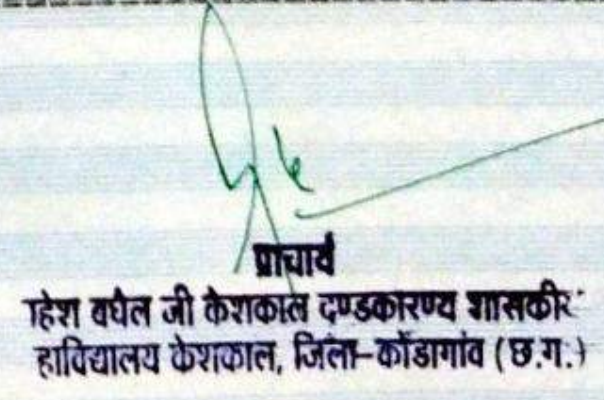 प्राचार्य
हेश बघेल जी केशकाल दण्डकारण्य शासकीय
हाविद्यालय केशकाल, जिला-कोंडागांव (छ.ग.)